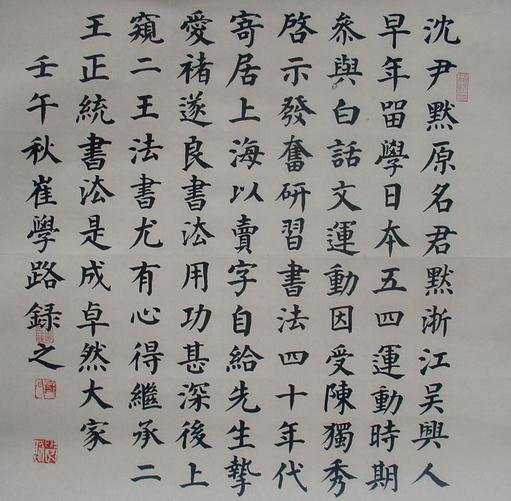 沈尹黙原名君黙浙江吴興人
早年畱學日本五四運動時期
叅與白話文運動因受陳獨秀
啓示發奮研習書法四十年代
寄居上海以賣字自給先生摯
愛褚遂良書法用功甚深後上
窺二王法書尤有心得繼承二
王正統書法是成卓然大家
壬午秋崔學路錄之